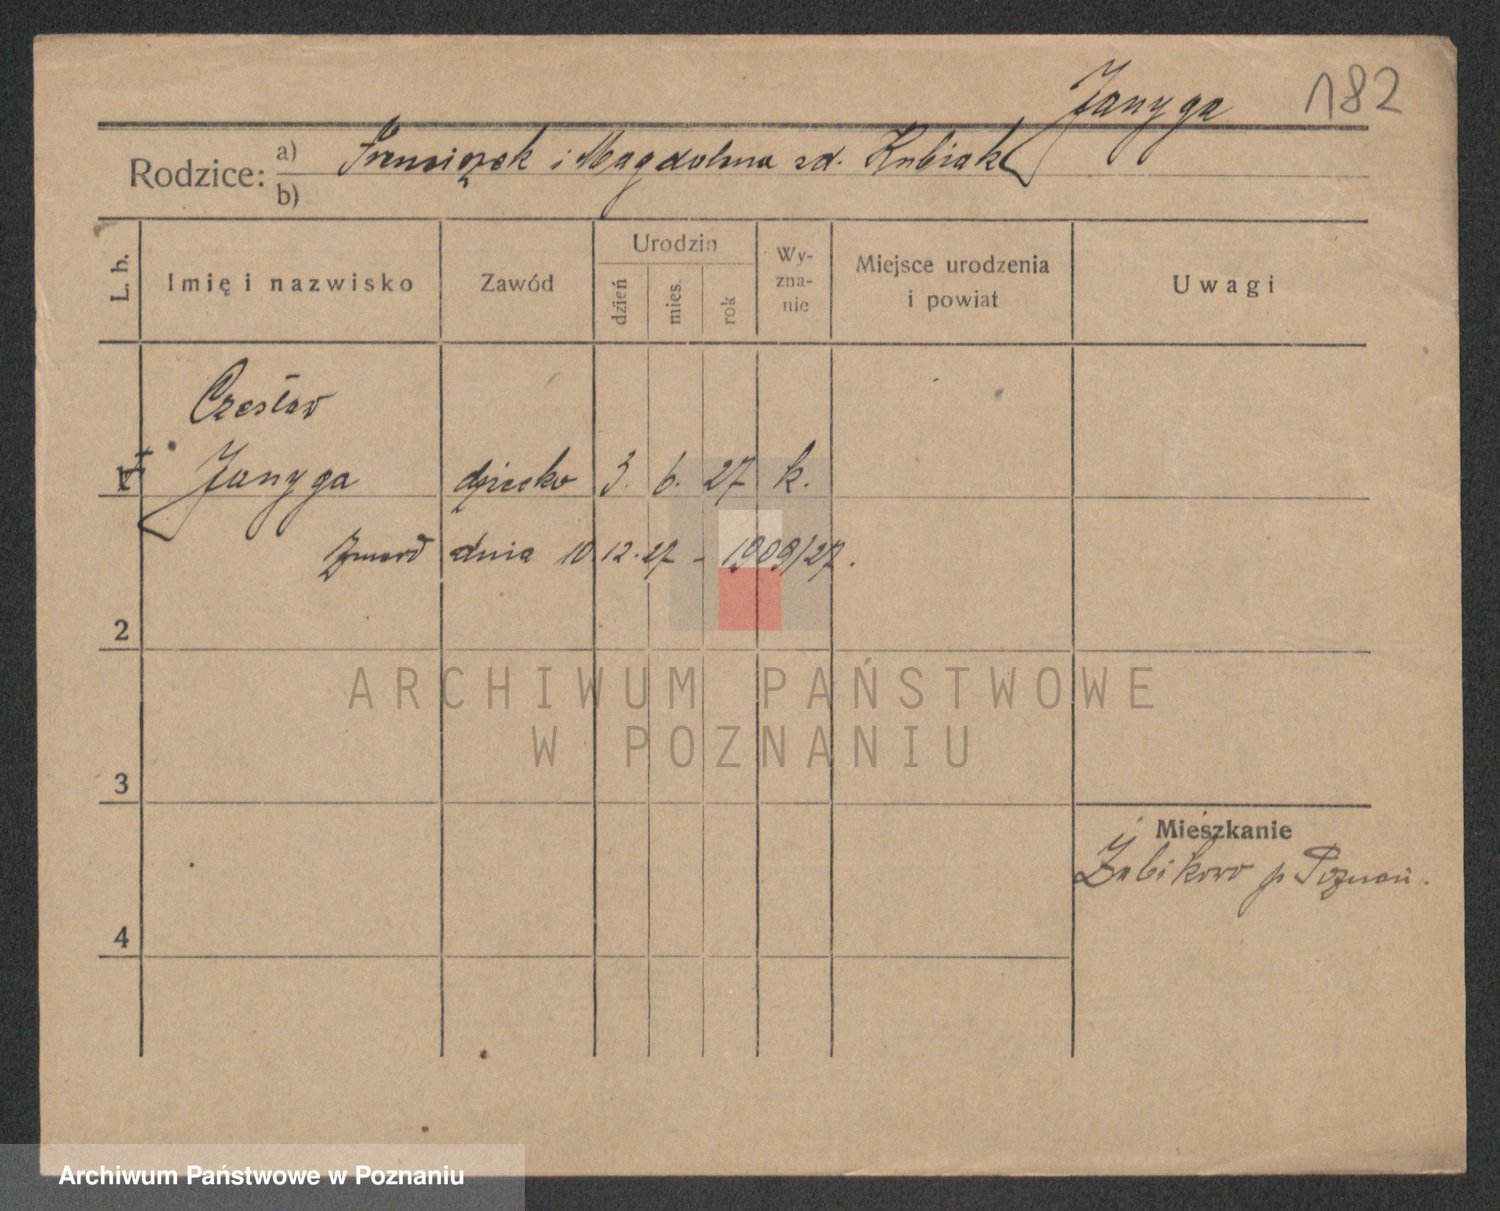 Janyga 182
Rodzice: a) Franciszek i Magdalena zd. Kubiak
b)
L. b. Imię i nazwisko Zawód Urodzin dzień mies. rok Wy-zna-nie Miejsce urodzenia i powiat Uwagi
Czesław
1 Janyga dziecko 3. 6. 27 k.
Zmarł dnia 10.12.27 - 1909/27.
2
ARCHIWUM PAŃSTWOWE
W POZNANIU
3
Mieszkanie
Żabikowo p. Poznań.
4
Archiwum Państwowe w Poznaniu